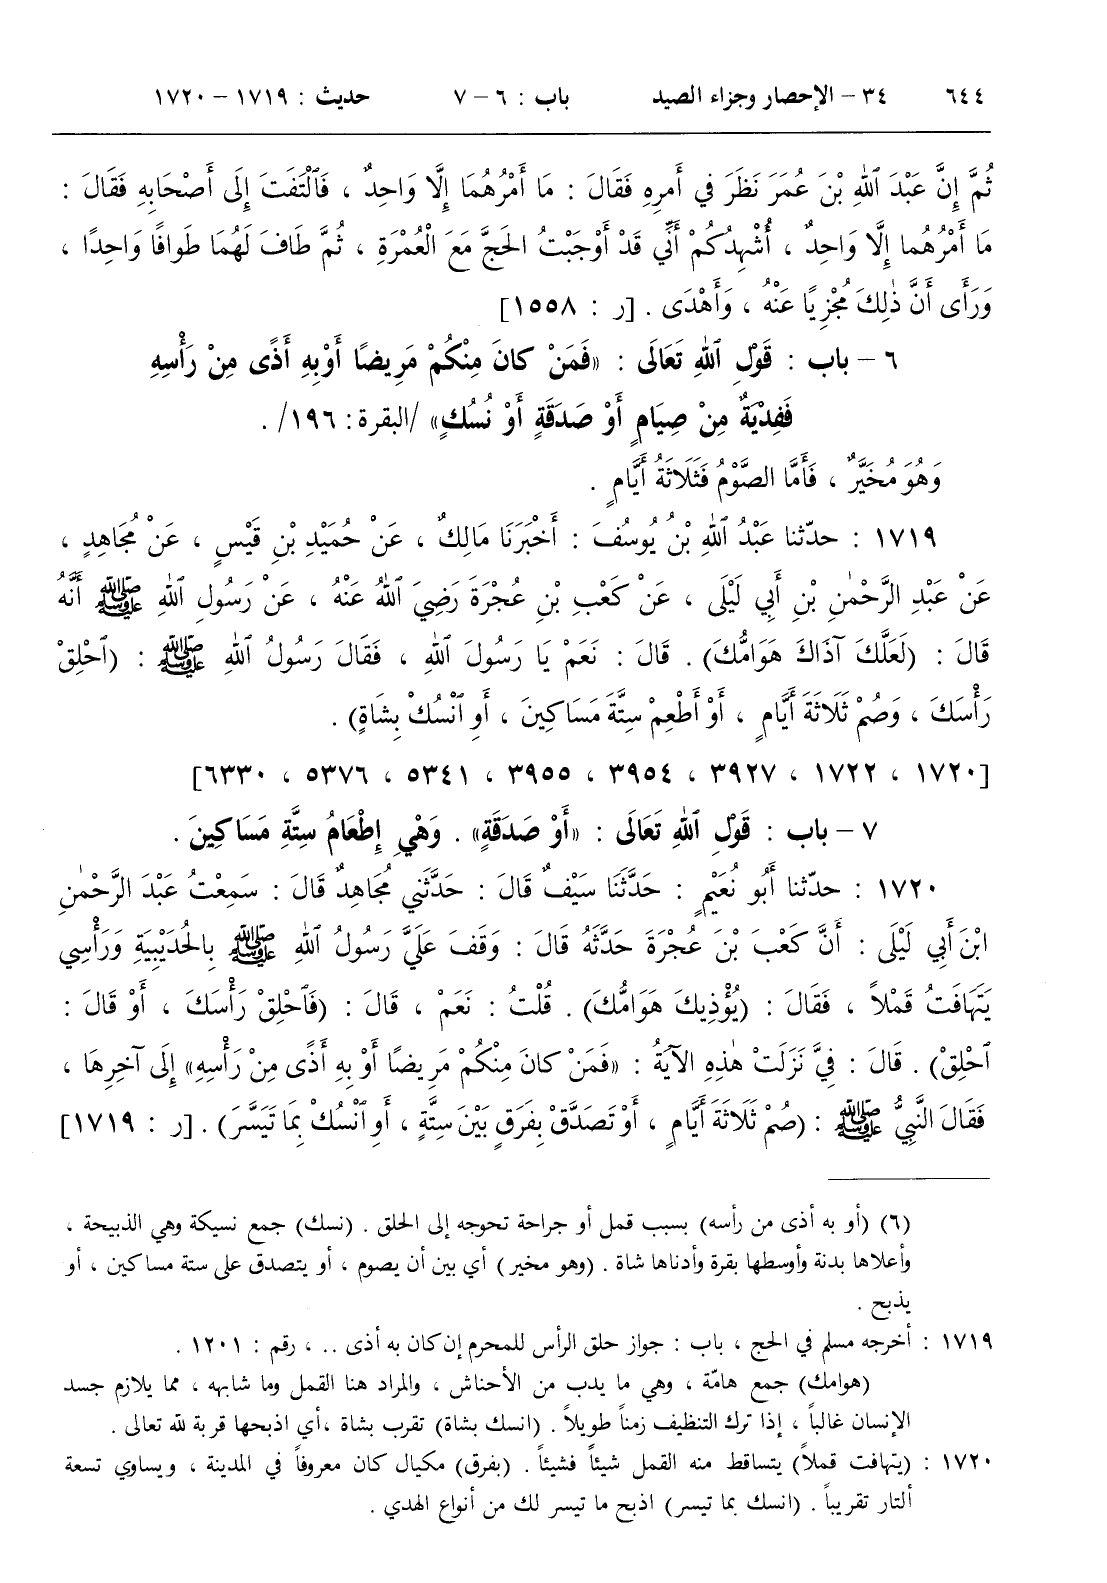 ٦٤٤ ٣٤ – الإحصار وجزاء الصيد باب : ٦ – ٧ حديث : ١٧١٩ – ١٧٢٠
ثُمَّ إِنَّ عَبْدَ ٱللهِ بْنَ عُمَرَ نَظَرَ فِي أَمرِهِ فَقَالَ : مَا أَمْرُهُمَا إِلَّا وَاحِدٌ ، فَٱلْتَفَتَ إِلَى أَصْحَابِهِ فَقَالَ :
مَا أَمْرُهُما إِلَّا وَاحِدٌ ، أُشْهِدُكُمْ أَنِّي قَدْ أَوْجَبْتُ الحَجَّ مَعَ الْعُمْرَةِ ، ثُمَّ طَافَ لَهُمَا طَوافًا وَاحِدًا ،
وَرَأَى أَنَّ ذٰلِكَ مُجْزِيًا عَنْهُ ، وَأَهْدَى . [ر : ١٥٥٨]
٦ – باب : قَوْلِ ٱللهِ تَعَالَى : «فَمَنْ كانَ مِنْكُمْ مَرِيضًا أَوْ بِهِ أَذًى مِنْ رَأْسِهِ
فَفِدْيَةٌ مِنْ صِيَامٍ أَوْ صَدَقَةٍ أَوْ نُسُكٍ» /البقرة : ١٩٦/ .
وَهُوَ مُخَيَّرٌ ، فَأَمَّا الصَّوْمُ فَثَلَاثَةُ أَيَّامٍ .
١٧١٩ : حدّثنا عَبْدُ ٱللهِ بْنُ يُوسُفَ : أَخْبَرَنَا مَالِكٌ ، عَنْ حُمَيْدِ بْنِ قَيْسٍ ، عَنْ مُجَاهِدٍ ،
عَنْ عَبْدِ الرَّحْمٰنِ بْنِ أَبِي لَيْلَى ، عَنْ كَعْبِ بْنِ عُجْرَةَ رَضِيَ ٱللهُ عَنْهُ ، عَنْ رَسُولِ ٱللهِ ﷺ أَنَّهُ
قَالَ : (لَعَلَّكَ آذَاكَ هَوَامُّكَ) . قَالَ : نَعَمْ يَا رَسُولَ ٱللهِ ، فَقَالَ رَسُولُ ٱللهِ ﷺ : (ٱحْلِقْ
رَأْسَكَ ، وَصُمْ ثَلَاثَةَ أَيَّامٍ ، أَوْ أَطْعِمْ سِتَّةَ مَسَاكِينَ ، أَوِ ٱنْسُكْ بِشَاةٍ) .
[١٧٢٠ ، ١٧٢٢ ، ٣٩٢٧ ، ٣٩٥٤ ، ٣٩٥٥ ، ٥٣٤١ ، ٥٣٧٦ ، ٦٣٣٠]
٧ – باب : قَوْلِ ٱللهِ تَعَالَى : «أَوْ صَدَقَةٍ» . وَهْيِ إِطْعَامُ سِتَّةِ مَسَاكِينَ .
١٧٢٠ : حدّثنا أَبُو نُعَيْمٍ : حَدَّثَنَا سَيْفٌ قَالَ : حَدَّثَنِي مُجَاهِدٌ قَالَ : سَمِعْتُ عَبْدَ الرَّحْمٰنِ
ابْنَ أَبِي لَيْلَى : أَنَّ كَعْبَ بْنَ عُجْرَةَ حَدَّثَهُ قَالَ : وَقَفَ عَلَيَّ رَسُولُ ٱللهِ ﷺ بِالحُدَيْبِيَةِ وَرَأْسِي
يَتَهَافَتُ قَمْلاً ، فَقَالَ : (يُؤْذِيكَ هَوَامُّكَ) . قُلْتُ : نَعَمْ ، قَالَ : (فَٱحْلِقْ رَأْسَكَ ، أَوْ قَالَ :
ٱحْلِقْ) . قَالَ : فِيَّ نَزَلَتْ هٰذِهِ الآيَةُ : «فَمَنْ كانَ مِنْكُمْ مَرِيضًا أَوْ بِهِ أَذًى مِنْ رَأْسِهِ» إِلَى آخِرِهَا ،
فَقَالَ النَّبِيُّ ﷺ : (صُمْ ثَلَاثَةَ أَيَّامٍ ، أَوْ تَصَدَّقْ بِفَرَقٍ بَيْنَ سِتَّةٍ ، أَوِ ٱنْسُكْ بِمَا تَيَسَّرَ) . [ر : ١٧١٩]
(٦) (أو به أذى من رأسه) بسبب قمل أو جراحة تحوجه إلى الحلق . (نسك) جمع نسيكة وهي الذبيحة ،
وأعلاها بدنة وأوسطها بقرة وأدناها شاة . (وهو مخير) أي بين أن يصوم ، أو يتصدق على ستة مساكين ، أو
يذبح .
١٧١٩ : أخرجه مسلم في الحج ، باب : جواز حلق الرأس للمحرم إن كان به أذى .. ، رقم : ١٢٠١ .
(هوامك) جمع هامّة ، وهي ما يدب من الأحناش ، والمراد هنا القمل وما شابهه ، مما يلازم جسد
الإنسان غالباً ، إذا ترك التنظيف زمناً طويلاً . (انسك بشاة) تقرب بشاة ،أي اذبحها قربة لله تعالى .
١٧٢٠ : (يتهافت قملاً) يتساقط منه القمل شيئاً فشيئاً . (بفرق) مكيال كان معروفاً في المدينة ، ويساوي تسعة
ألتار تقريباً . (انسك بما تيسر) اذبح ما تيسر لك من أنواع الهدي .